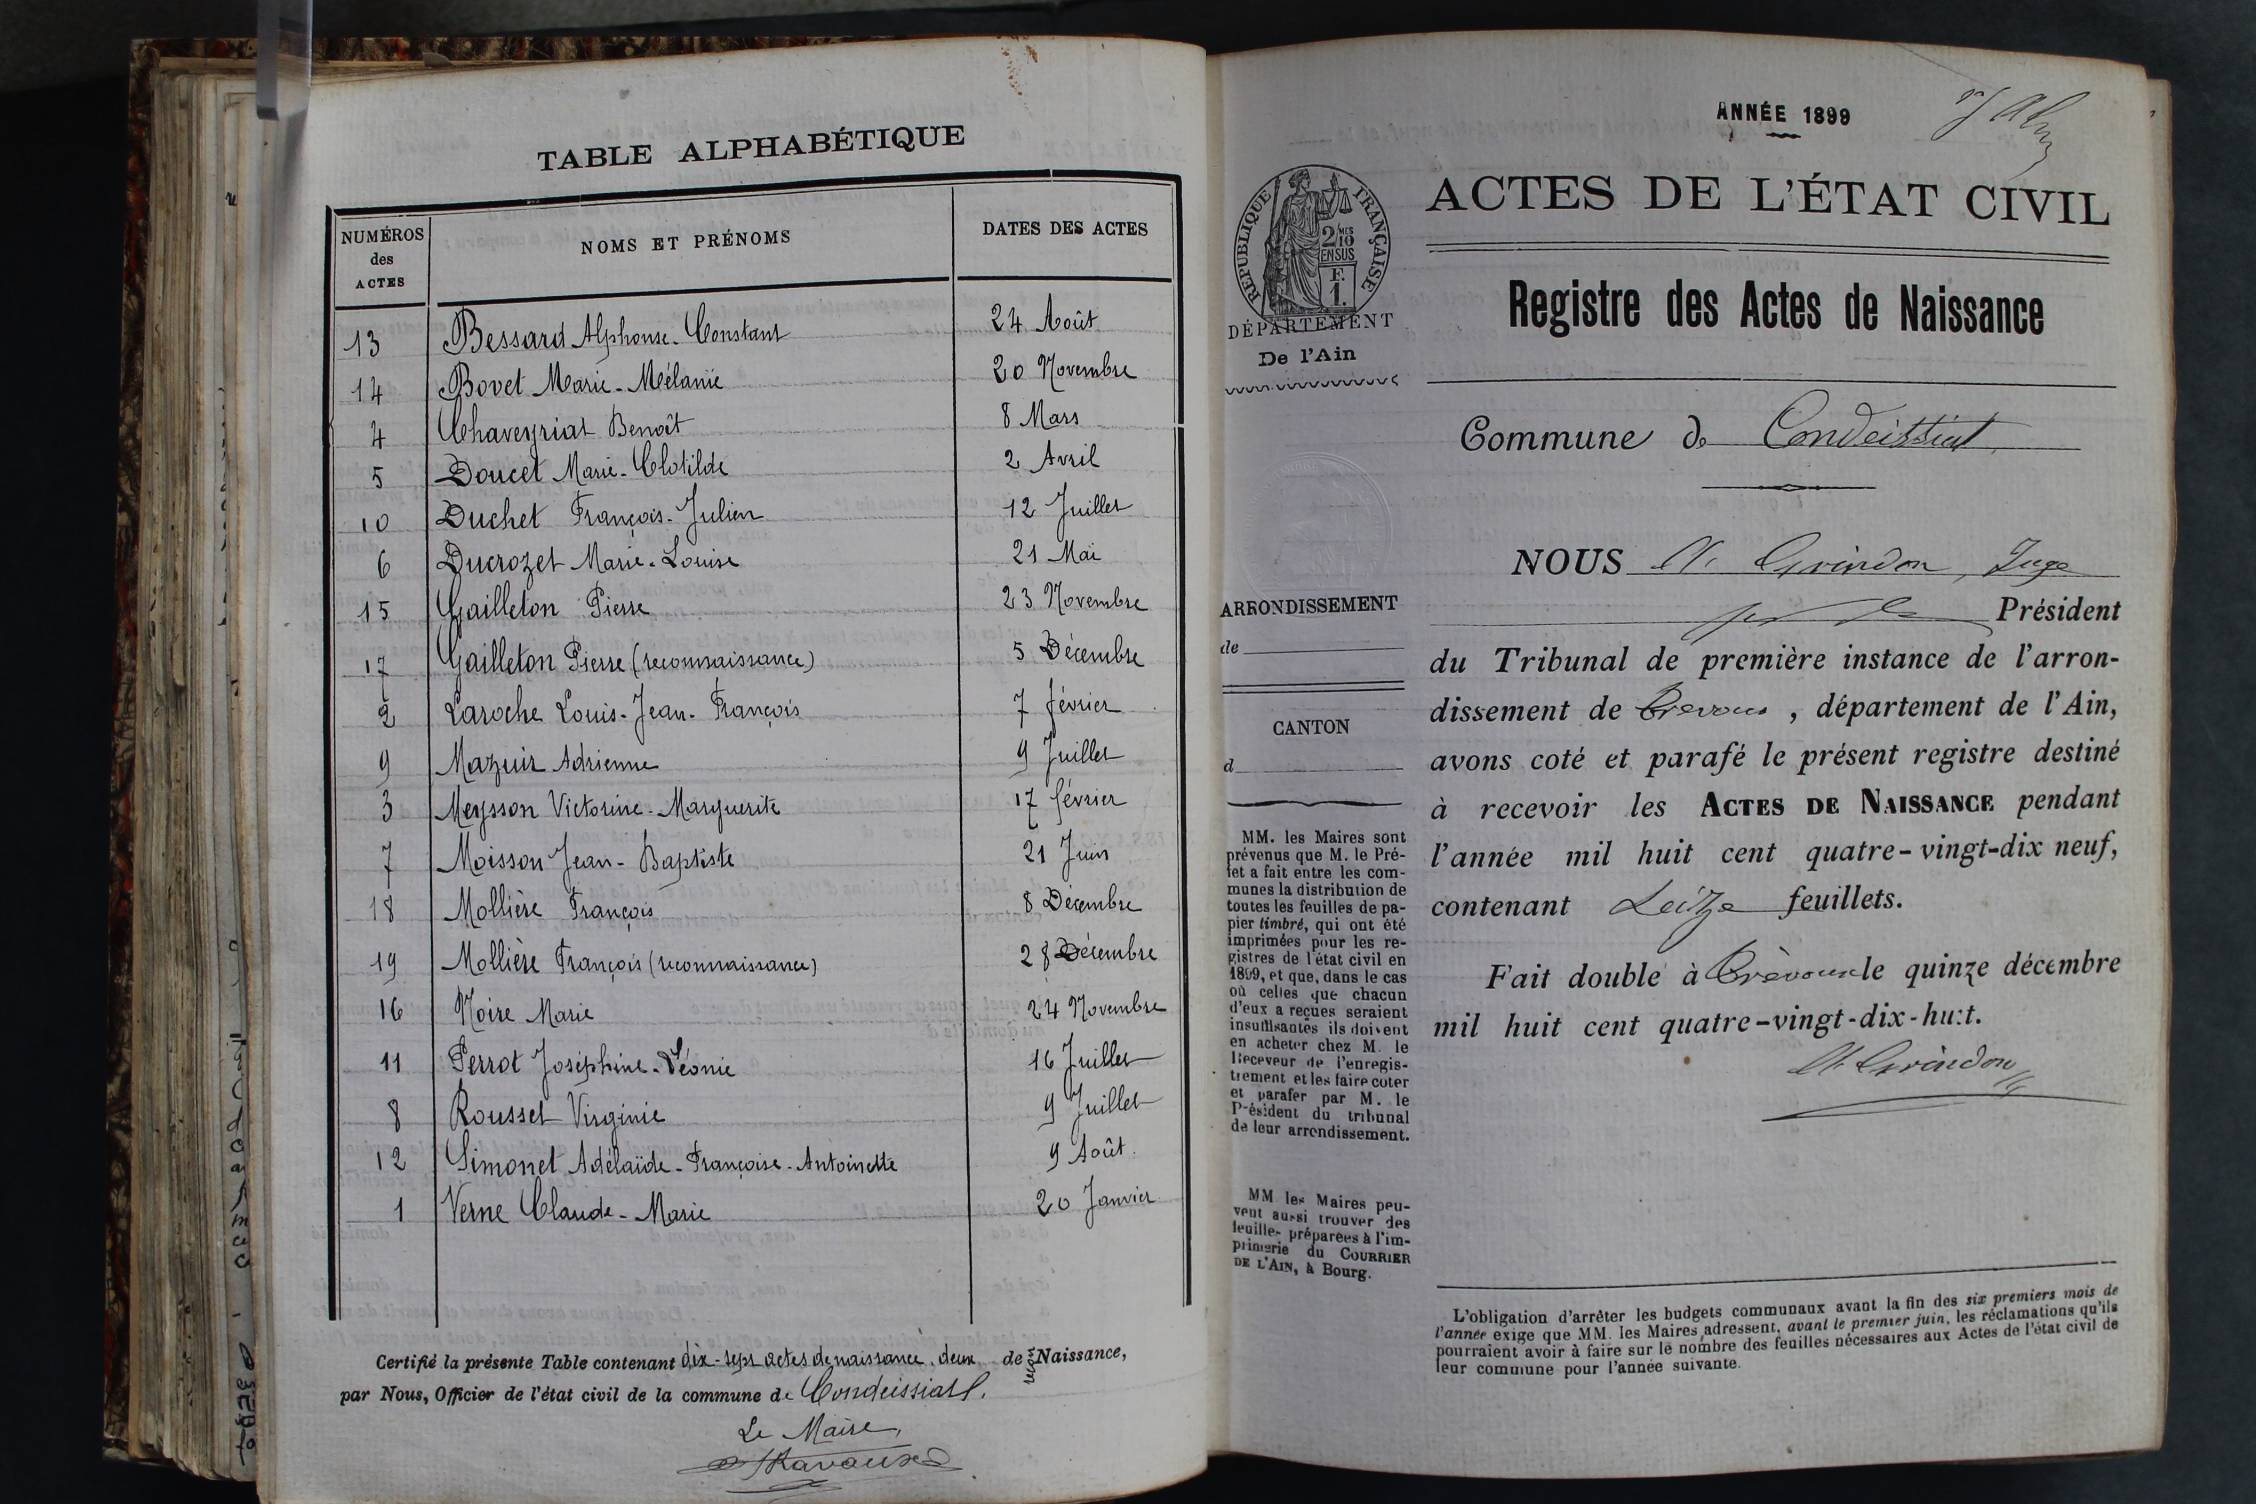 TABLE ALPHABÉTIQUE
NUMÉROS des ACTES
NOMS ET PRÉNOMS
DATES DES ACTES
13 Bessard Alphonse-Constant 24 Août
14 Bovet Marie-Mélanie 20 Novembre
4 Chaveyriat Benoît 8 Mars
5 Doucet Marie-Clotilde 2 Avril
10 Duchet François-Julien 12 Juillet
6 Ducrozet Marie-Louise 21 Mai
15 Gailleton Pierre 23 Novembre
17 Gailleton Pierre (reconnaissance) 5 Décembre
2 Laroche Louis-Jean-François 7 février
9 Mazuir Adrienne 9 Juillet
3 Meysson Victorine-Marguerite 17 février
7 Moisson Jean-Baptiste 21 Juin
18 Mollière François 8 Décembre
19 Mollière François (reconnaissance) 28 Décembre
16 Noire Marie 24 Novembre
11 Perrot Joséphine-Léonie 16 Juillet
8 Rousset Virginie 9 Juillet
12 Simonet Adélaïde-Françoise-Antoinette 9 Août
1 Verne Claude-Marie 20 Janvier
Certifié la présente Table contenant dix-sept actes de naissance, deux de recon Naissance,
par Nous, Officier de l'état civil de la commune de Condeissiat.
Le Maire,
ANNÉE 1899
ACTES DE L'ÉTAT CIVIL
RÉPUBLIQUE FRANÇAISE
2/10 MES
EN SUS
F.
1.
DÉPARTEMENT
De l'Ain
Registre des Actes de Naissance
Commune de Condeissiat
NOUS M. Grindon, Juge
Président
du Tribunal de première instance de l'arron-
dissement de Trévoux, département de l'Ain,
avons coté et parafé le présent registre destiné
à recevoir les ACTES DE NAISSANCE pendant
l'année mil huit cent quatre-vingt-dix neuf,
contenant Seize feuillets.
Fait double à Trévoux le quinze décembre
mil huit cent quatre-vingt-dix-huit.
Grindon
ARRONDISSEMENT
de
CANTON
d
MM. les Maires sont
prévenus que M. le Pré-
fet a fait entre les com-
munes la distribution de
toutes les feuilles de pa-
pier timbré, qui ont été
imprimées pour les re-
gistres de l'état civil en
1899, et que, dans le cas
où celles que chacun
d'eux a reçues seraient
insuffisantes ils doivent
en acheter chez M. le
Receveur de l'enregis-
trement et les faire coter
et parafer par M. le
Président du tribunal
de leur arrondissement.
MM les Maires peu-
vent aussi trouver des
feuilles préparées à l'im-
primerie du COURRIER
DE L'AIN, à Bourg.
L'obligation d'arrêter les budgets communaux avant la fin des six premiers mois de
l'année exige que MM. les Maires adressent, avant le premier juin, les réclamations qu'ils
pourraient avoir à faire sur le nombre des feuilles nécessaires aux Actes de l'état civil de
leur commune pour l'année suivante.